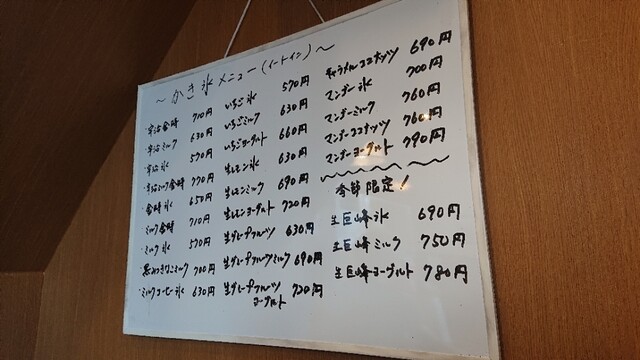 ～かき氷メニュー(イートイン)～
・宇治金時 710円
・宇治ミルク 630円
・宇治氷 570円
・宇治ミルク金時 770円
・金時氷 650円
・ミルク金時 710円
・ミルク氷 570円
・黒みつきなこミルク 700円
・ミルクコーヒー氷 630円
いちご氷 570円
いちごミルク 630円
いちごヨーグルト 660円
生レモン氷 630円
生レモンミルク 690円
生レモンヨーグルト 720円
生グレープフルーツ 630円
生グレープフルーツミルク 690円
生グレープフルーツ
ヨーグルト 720円
キャラメルココナッツ 690円
マンゴー氷 700円
マンゴーミルク 760円
マンゴーココナッツ 760円
マンゴーヨーグルト 790円
季節限定!
生巨峰氷 690円
生巨峰ミルク 750円
生巨峰ヨーグルト 780円